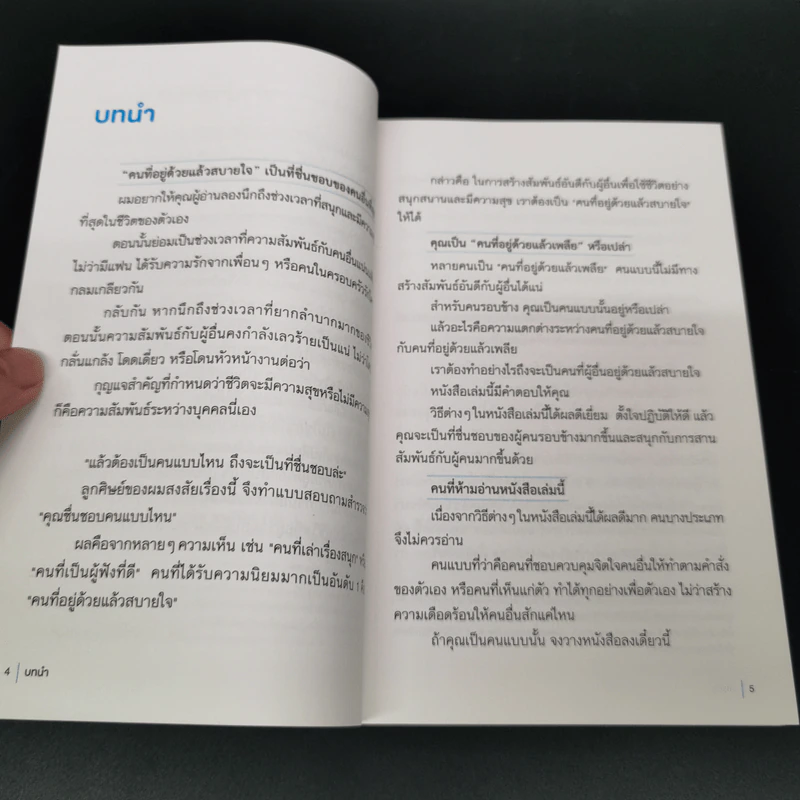 บทนำ
"คนที่อยู่ด้วยแล้วสบายใจ" เป็นที่ชื่นชอบของคนอื่น
ผมอยากให้คุณผู้อ่านลองนึกถึงช่วงเวลาที่สนุกและมีความ
ที่สุดในชีวิตของตัวเอง
ตอนนั้นย่อมเป็นช่วงเวลาที่ความสัมพันธ์กับคนอื่น
ไม่ว่ามีแฟน ได้รับความรักจากเพื่อนๆ หรือคนในครอบครัว
กลมเกลียวกัน
กลับกัน หากนึกถึงช่วงเวลาที่ยากลำบากมากของ
ตอนนั้นความสัมพันธ์กับผู้อื่นคงกำลังเลวร้ายเป็นแน่ ไม่ว่า
กลั่นแกล้ง โดดเดี่ยว หรือโดนหัวหน้างานต่อว่า
กุญแจสำคัญที่กำหนดว่าชีวิตจะมีความสุขหรือไม่มีความ
ก็คือความสัมพันธ์ระหว่างบุคคลนี่เอง
"แล้วต้องเป็นคนแบบไหน ถึงจะเป็นที่ชื่นชอบล่ะ"
ลูกศิษย์ของผมสงสัยเรื่องนี้ จึงทำแบบสอบถามสำรวจ
"คุณชื่นชอบคนแบบไหน"
ผลคือจากหลายๆ ความเห็น เช่น "คนที่เล่าเรื่องสนุก"
"คนที่เป็นผู้ฟังที่ดี" คนที่ได้รับความนิยมมากเป็นอันดับ 1 คือ
"คนที่อยู่ด้วยแล้วสบายใจ"
4 | บทนำ
กล่าวคือ ในการสร้างสัมพันธ์อันดีกับผู้อื่นเพื่อใช้ชีวิตอย่าง
สนุกสนานและมีความสุข เราต้องเป็น "คนที่อยู่ด้วยแล้วสบายใจ"
ให้ได้
คุณเป็น "คนที่อยู่ด้วยแล้วเพลีย" หรือเปล่า
หลายคนเป็น "คนที่อยู่ด้วยแล้วเพลีย" คนแบบนี้ไม่มีทาง
สร้างสัมพันธ์อันดีกับผู้อื่นได้แน่
สำหรับคนรอบข้าง คุณเป็นคนแบบนั้นอยู่หรือเปล่า
แล้วอะไรคือความแตกต่างระหว่างคนที่อยู่ด้วยแล้วสบายใจ
กับคนที่อยู่ด้วยแล้วเพลีย
เราต้องทำอย่างไรถึงจะเป็นคนที่ผู้อื่นอยู่ด้วยแล้วสบายใจ
หนังสือเล่มนี้มีคำตอบให้คุณ
วิธีต่างๆ ในหนังสือเล่มนี้ได้ผลดีเยี่ยม ตั้งใจปฏิบัติให้ดี แล้ว
คุณจะเป็นที่ชื่นชอบของผู้คนรอบข้างมากขึ้นและสนุกกับการสาน
สัมพันธ์กับผู้คนมากขึ้นด้วย
คนที่ห้ามอ่านหนังสือเล่มนี้
เนื่องจากวิธีต่างๆ ในหนังสือเล่มนี้ได้ผลดีมาก คนบางประเภท
จึงไม่ควรอ่าน
คนแบบที่ว่าคือคนที่ชอบควบคุมจิตใจคนอื่นให้ทำตามคำสั่ง
ของตัวเอง หรือคนที่เห็นแก่ตัว ทำได้ทุกอย่างเพื่อตัวเอง ไม่ว่าสร้าง
ความเดือดร้อนให้คนอื่นสักแค่ไหน
ถ้าคุณเป็นคนแบบนั้น จงวางหนังสือลงเดี๋ยวนี้
| 5